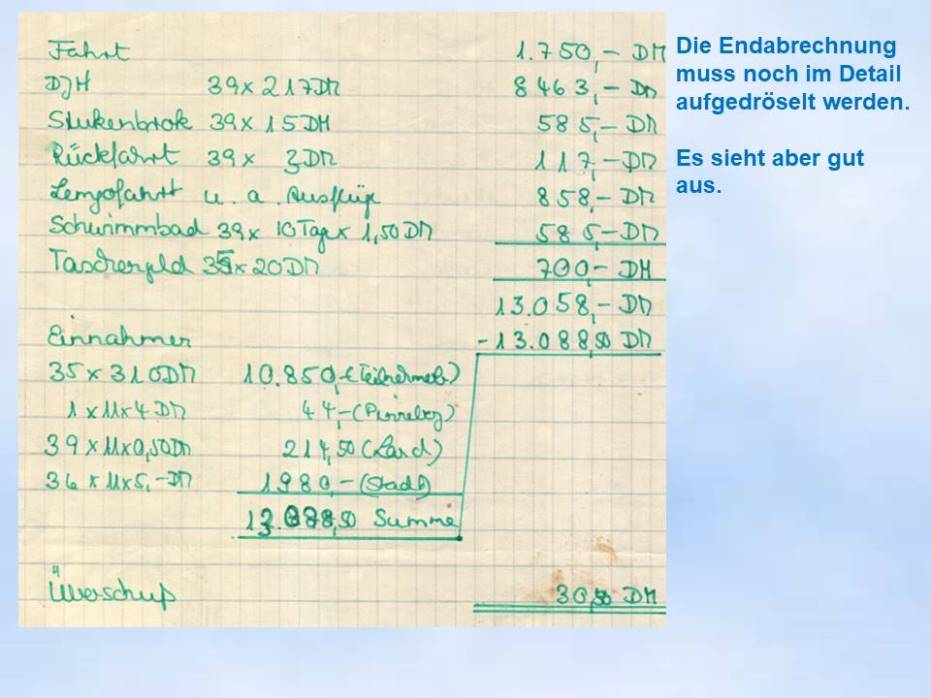 Fahrt 1.750,- DM
DJH 39 x 217 DM 8463,- DM
Stukenbrok 39 x 15 DM 585,- DM
Rückfahrt 39 x 3 DM 117,- DM
Lemgofahrt u. a. Ausflüge 858,- DM
Schwimmbad 39 x 10 Tage x 1,50 DM 585,- DM
Taschengeld 35 x 20 DM 700,- DM
13.058,- DM
Einnahmen - 13.088,50 DM
35 x 310 DM 10.850,- (Teilnehmerb.)
1 x 11 x 4 DM 44,- (Pinneberg)
39 x 11 x 0,50 DM 214,50 (Land)
36 x 11 x 5,- DM 1980,- (Stadt)
13.088,50 Summe
Überschuß 30,50 DM
Die Endabrechnung
muss noch im Detail
aufgedröselt werden.
Es sieht aber gut
aus.